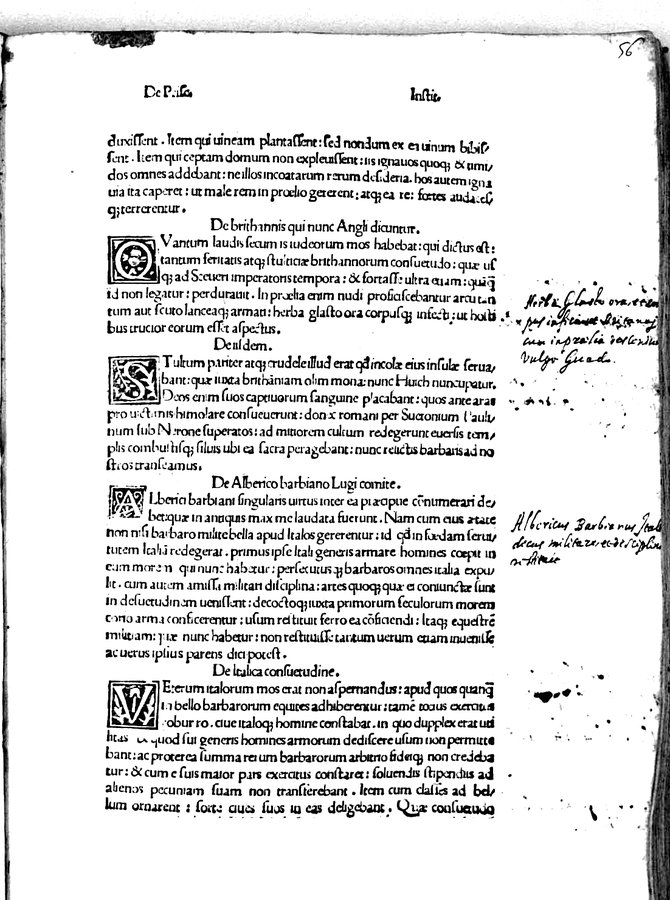 56
De Prisc. Instit.
duxissent. Item qui uineam plantassent: sed nondum ex ea uinum bibis⸗
sent. Item qui ceptam domum non expleuissent: iis ignauos quoq; & timi⸗
dos omnes addebant: ne illos incoatarum rerum desideria. hos autem igna
uia ita caperet: ut male rem in proelio gererent: atq; ea re: fortes audacesq;
q; terrerentur.
De brithannis qui nunc Angli dicuntur.
QVantum laudis secum is iudeorum mos habebat: qui dictus est:
tantum feritatis atq; stulticiæ brithannorum consuetudo: quæ usq;
q; ad Seueri imperatoris tempora: & fortasse ultra etiam: quāq̃
id non legatur: perdurauit. In prælia enim nudi proficiscebantur arcu tan
tum aut scuto lanceaq; armati: herba glasto ora corpusq; infecti: ut hosti
bus trucior eorum esset aspectus.
De iisdem.
STultum pariter atq; crudele illud erat qd incolæ eius insulæ serua⸗
bant: quæ iuxta brithāniam olim mona: nunc Huich nuncupatur.
Deos enim suos captiuorum sanguine placabant: quos ante aras
pro uictimis himolare consueuerunt: donec romani per Suetonium Pauli⸗
num sub Nerone superatos: ad mitiorem cultum redegerunt euersis tem⸗
plis combustisq; siluis ubi ea sacra peragebant: nunc relictis barbaris ad no
stros transeamus.
De Alberico barbiano Lugi comite.
ALberici barbiani singularis uirtus inter ea præcipue cōnumerari de⸗
bet: quæ in antiquis maxime laudata fuerunt. Nam cum eius ætate
non nisi barbaro milite bella apud Italos gererentur: id qd in foedam serui⸗
tutem Italiā redegerat. primus ipse Itali generis armare homines coepit in
eum morem qui nunc habetur: persecutusq; barbaros omnes italia expu⸗
lit. cum autem amissa militari disciplina: artes quoq; quæ ei coniunctæ sunt
in desuetudinem uenissent: decoctoq; iuxta primorum seculorum morem
corio arma conficerentur: usum restituit ferro ea cōficiendi: Itaq; equestrē
militiam: quæ nunc habetur: non restituisse tantum uerum etiam inuenisse
ac uerus ipsius parens dici potest.
De Italica consuetudine.
VEterum italorum mos erat non aspernandus: apud quos quanq̃
in bello barbarorum equites adhiberentur: tamē totius exercitus
robur ro. ciue italoq; homine constabat. in quo dupplex erat uti
litas quod sui generis homines armorum dediscere usum non permitte
bant: ac proterea summa rerum barbarorum arbitrio fideiq; non credeba
tur: & cum e suis maior pars exercitus constaret: soluendis stipendiis ad
alienos pecuniam suam non transferebant. Item cum classes ad bel⸗
lum ornarent: forte ciues suos in eas deligebant. Quæ consuetudo
Herba Glasto ora et cor
pus inficiunt Britanni
cum in prælia descendunt
vulgo Guado.
Albericus Barbianus Itali
cus militare et disciplinā
restituit